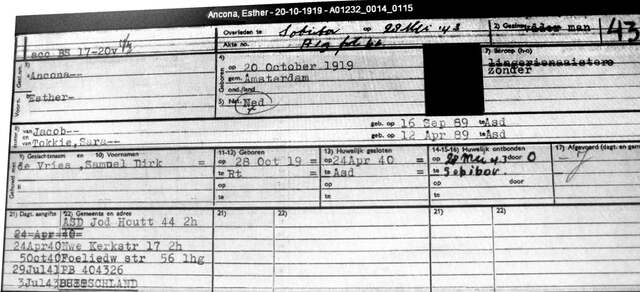 Ancona, Esther - 20-10-1919 - A01232_0014_0115
Overleden te Sobibor op 28 Mei '43
Akte no.
2) Gezins man 43
acc BS 17-20v
Ancona--
Esther-
4)
op 20 October 1919
gem. Amsterdam
ond./land
5) Nat. Ned
7) Beroep (h-o)
lingerienaaistere
zonder
van Jacob-- geb. op 16 Sep 89 te Asd
en van Tokkie, Sara-- geb. op 12 Apr 89 te Asd
9) Geslachtsnaam en 10) Voornamen 11-12) Geboren 13) Huwelijk gesloten 14-15-16) Huwelijk ontbonden 17) Afgevoerd (dagt. en
de Vries ,Samuel Dirk = op 28 Oct 19 = op 24Apr 40 = op 28 Mei 43 door O
= te Rt = te Asd = te Sobibor.
op op op door
te te te
21) Dagt. aangifte 22) Gemeente en adres 21) 22) 21) 22)
ASD Jod Houtt 44 2h
24 Apr 40
24Apr40 Nwe Kerkstr 17 2h
5Oct40 Foeliedw str 56 1hg
29Jul41 PB 404326
3Jul43 DUITSCHLAND